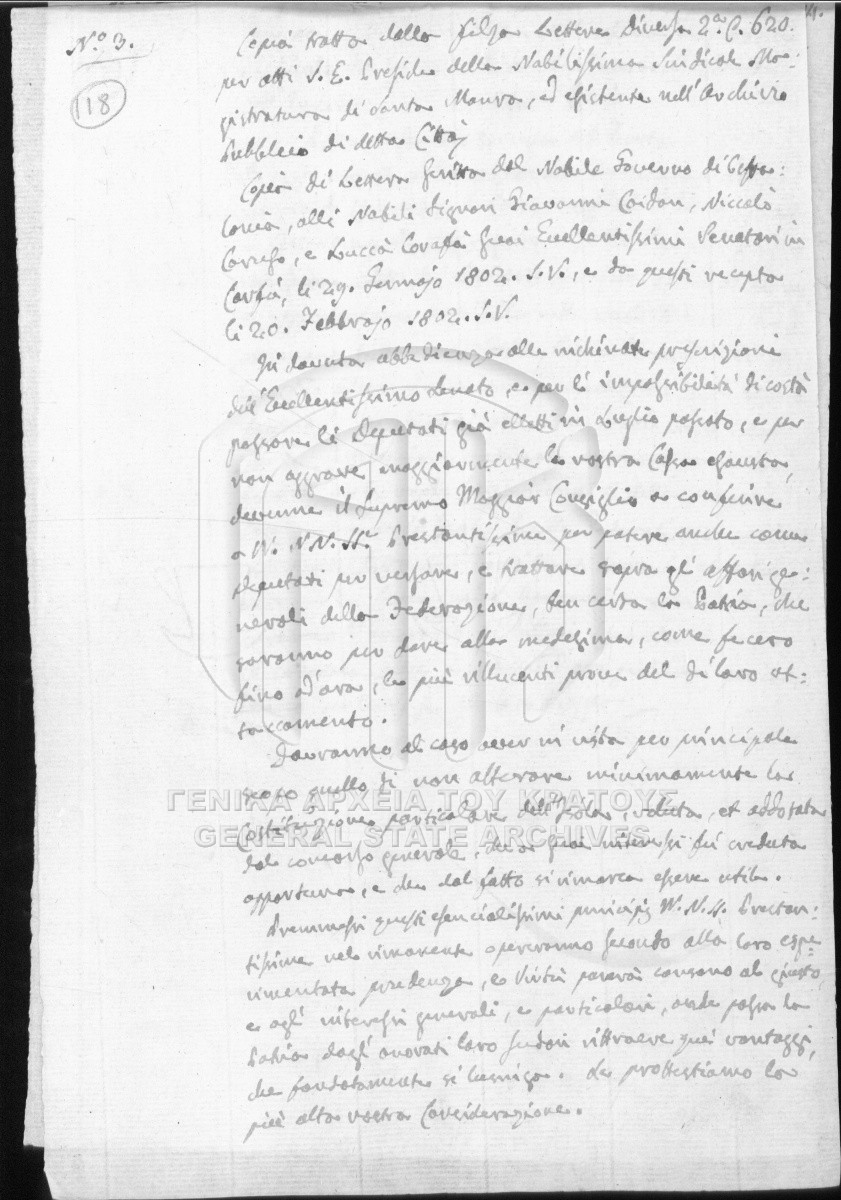 N.o 3.
4.
118
Copia tratta dalla filza Lettere diverse 2.a C. 620.
per atti S. E. Preside della Nobilissima Sindical Ma:
gistratura di Santa Maura, ed esistente nell'Archivio
Pubblico di detta Città
Copia di Lettera scritta dal Nobile Governo di Ceffa:
lonia, alli Nobili Signori Giovanni Caidan, Niccolò
Corafà, e Lucca Corafà suoi Eccellentissimi Senatori in
Corfù, li 29. Gennajo 1802. S.V., e da questi recepta
li 20. Febbrajo 1802. S.V.
In dovuta obbedienza alle inchinate prescrizioni
dell'Eccellentissimo Senato, e per l'impossibilità di costà
passare li Deputati già elletti in Luglio passato, e per
non aggravar maggiormente la nostra Cassa esausta,
devenne il Supremo Maggior Consiglio a conferire
a VV. NN. SS.re Prestantissime per potere anche come
Deputati per versare, e trattare sopra gl'affari ge:
nerali della Federazione, ben certa la Patria, che
saranno per dare alla medesima, come fecero
fino ad'ora, le più rillucenti prove del di loro at:
taccamento.
Dovranno al caso aver in vista per principale
scopo quello di non alterare minimamente la
Costituzione particolare dell'Isola, voluta, et addotata
dal concorso generale, che a suoi interessi fù creduta
opportuna, e che dal fatto si rimarca essere utile.
Premmessi questi esencialissimi principj VV. N. SS. Prestan:
tissime nel rimanente opereranno secondo alla loro espe=
rimentata prudenza, e Virtù parerà consono al giusto,
e agl'interessi generali, e particolari, onde possa la
Patria dagl'onorati loro sudori rittraere que' vantaggi,
che fondatamente si lusinga. Le prottestiamo la
più alta nostra Considerazione.
ΓΕΝΙΚΑ ΑΡΧΕΙΑ ΤΟΥ ΚΡΑΤΟΥΣ
GENERAL STATE ARCHIVES